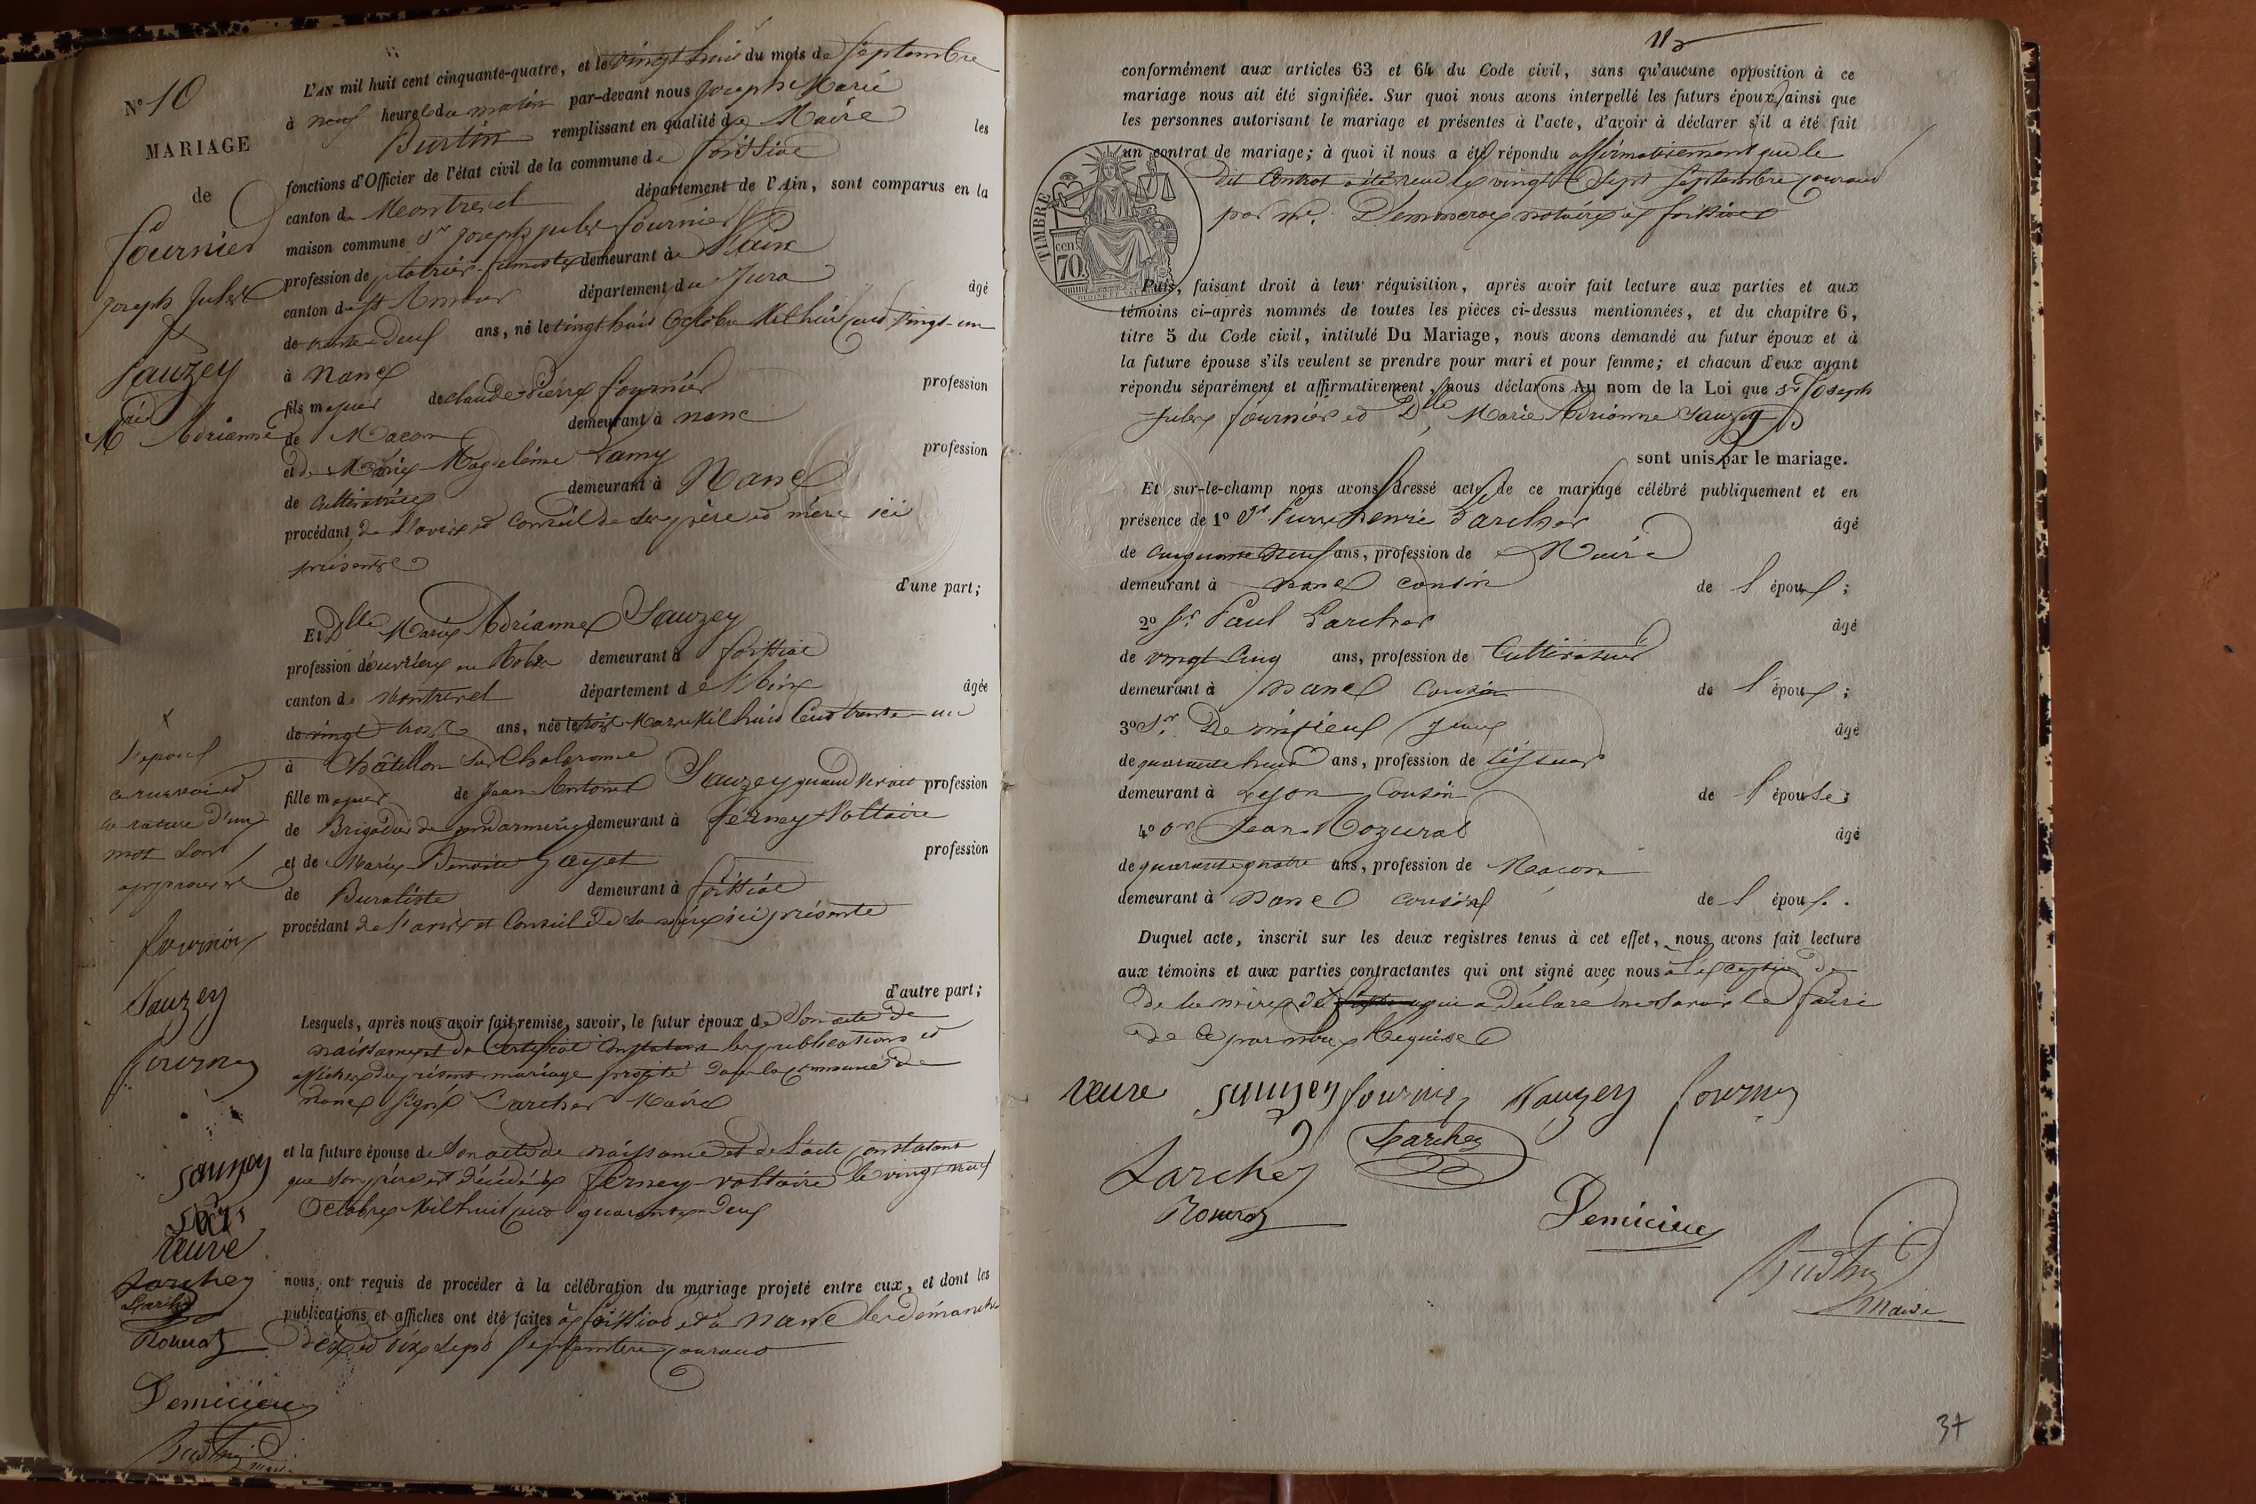 N° 10
MARIAGE
de
Fournier
Joseph Jules
&
Sauzey
Marie Adrianne
L'AN mil huit cent cinquante-quatre, et le vingt huit du mois de Septembre
à neuf heures du matin par-devant nous Joseph Marie
Burtin remplissant en qualité de Maire les
fonctions d'Officier de l'état civil de la commune de Foissiat
canton de Montrevel département de l'Ain, sont comparus en la
maison commune Sr Joseph Jules Fournier
profession de platrier fumiste demeurant à
canton de St Amour département du Jura âgé
de trente deux ans, né le vingt huit Octobre Mil huit cent vingt-un
à Nanc
fils majeur de Claude Pierre Fournier profession
de Macon demeurant à Nanc
et de Marie Magdeleine Lamy profession
de Cultivatrice demeurant à Nanc
procédant de l'avis et conseil de ses père et mère ici
présents
d'une part;
Et Dlle Marie Adrianne Sauzey
profession d'ouvrière en Robe demeurant à Foissiat
canton de Montrevel département de l'Ain âgée
de vingt trois ans, née le trois Mars Mil huit Cent trente-un
à Châtillon sur Chalaronne
fille majeur de Jean Antoine Sauzey quand vivait profession
de Brigadier de gendarmerie demeurant à Ferney Voltaire
et de Marie Benoite Gayet profession
de Buraliste demeurant à Foissiat
procédant de l'avis et Conseil de sa mère ici présente
d'autre part;
Lesquels, après nous avoir fait remise, savoir, le futur époux de Son acte de
naissance et du Certificat constatant les publications et
affiches du présent mariage projeté dans la commune de
Nanc signé Larcher Maire
et la future épouse de Son acte de naissance et de l'acte constatant
que son père est décédé à Ferney-Voltaire le vingt neuf
Octobre Mil huit cent quarante-deux
nous ont requis de procéder à la célébration du mariage projeté entre eux, et dont les
publications et affiches ont été faites à Foissiat et à Nanc les dimanches
dix et dix sept Septembre courant
x
l'époux
ce renvoi et
la rature d'un
mot sont
approuvés
Fournier
Sauzey
Fournier
Sauzey
veuve
Larcher
Larcher
Rozurat
Demicieux
Burtin
maire
112
conformément aux articles 63 et 64 du Code civil, sans qu'aucune opposition à ce
mariage nous ait été signifiée. Sur quoi nous avons interpellé les futurs époux, ainsi que
les personnes autorisant le mariage et présentes à l'acte, d'avoir à déclarer s'il a été fait
un contrat de mariage; à quoi il nous a été répondu affirmativement que le
dit Contrat a été reçu le vingt Sept Septembre courant
par Me. notaire à Foissiat
TIMBRE
70 cen.
Puis, faisant droit à leur réquisition, après avoir fait lecture aux parties et aux
témoins ci-après nommés de toutes les pièces ci-dessus mentionnées, et du chapitre 6,
titre 5 du Code civil, intitulé Du Mariage, nous avons demandé au futur époux et à
la future épouse s'ils veulent se prendre pour mari et pour femme; et chacun d'eux ayant
répondu séparément et affirmativement, nous déclarons Au nom de la Loi que Sr Joseph
Jules Fournier et Dlle Marie Adrianne Sauzey
sont unis par le mariage.
Et sur-le-champ nous avons dressé acte de ce mariage célébré publiquement et en
présence de 1° Sr Pierre Henri Larcher âgé
de Cinquante Neuf ans, profession de Maire
demeurant à Nanc cousin de l'époux;
2° Sr Paul Larcher âgé
de vingt Cinq ans, profession de Cultivateur
demeurant à Nanc Cousin de l'époux;
3° Sr Demisieux Jean âgé
de quarante huit ans, profession de tisseur
demeurant à Lyon Cousin de l'épouse;
4° Sr Jean Rozurat âgé
de quarante quatre ans, profession de Macon
demeurant à Nanc cousin de l'époux.
Duquel acte, inscrit sur les deux registres tenus à cet effet, nous avons fait lecture
aux témoins et aux parties contractantes qui ont signé avec nous à l'exception de
de la mère de qui a déclaré ne savoir le faire
de ce par nous Requise
veuve Sauzey Fournier Sauzey Fournier
Larcher
Larcher
Rozurat
Demicieux
Burtin
maire
37